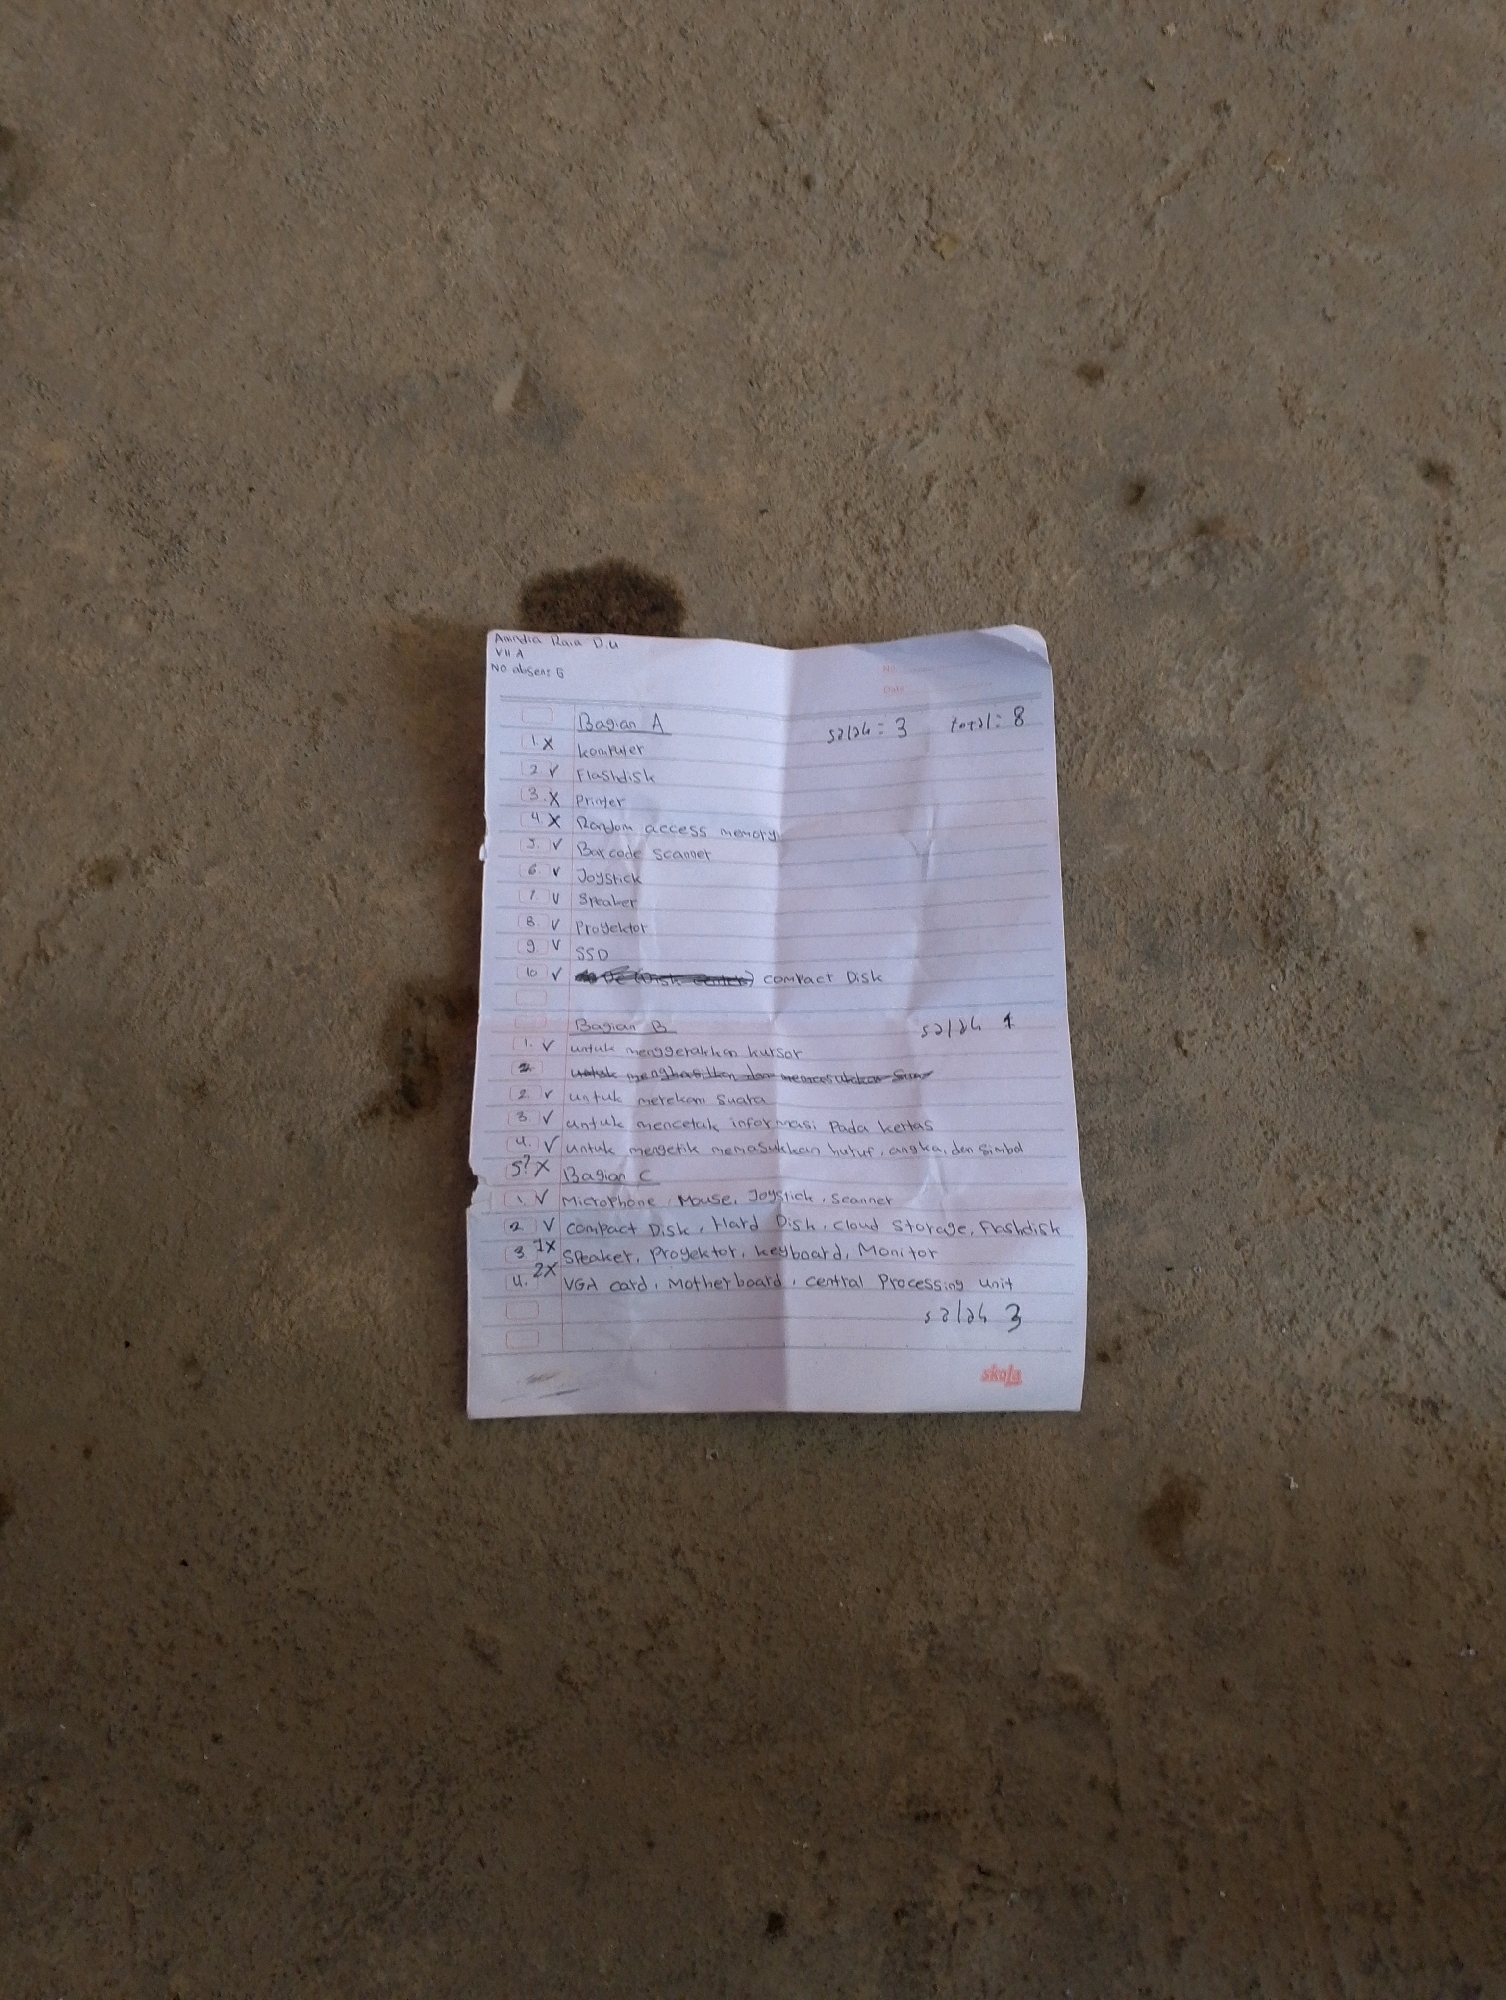 Anindia Raia D.U
VII A
No absen: 6
No
Date
Bagian A salah = 3 total = 8
1. X komputer
2 √ Flashdisk
3. X Printer
4. X Random access memory
5. √ Barcode scanner
6 √ Joystick
7. √ Speaker
8. √ Proyektor
9 √ SSD
10 √ (Disk center) compact Disk
Bagian B salah 1
1. √ untuk menggerakkan kursor
2. untuk menghasilkan dan memasukkan Suara
2. √ untuk merekam Suara
3. √ untuk mencetak informasi Pada kertas
4. √ untuk mengetik memasukkan huruf, angka, dan Simbol
5? X Bagian C
1. √ Microphone, Mouse, Joystick, scanner
2 √ compact Disk, Hard Disk, cloud Storage, Flashdisk
3 1X Speaker, Proyektor, keyboard, Monitor
4. 2X VGA card, Motherboard, central Processing unit
salah 3
skola